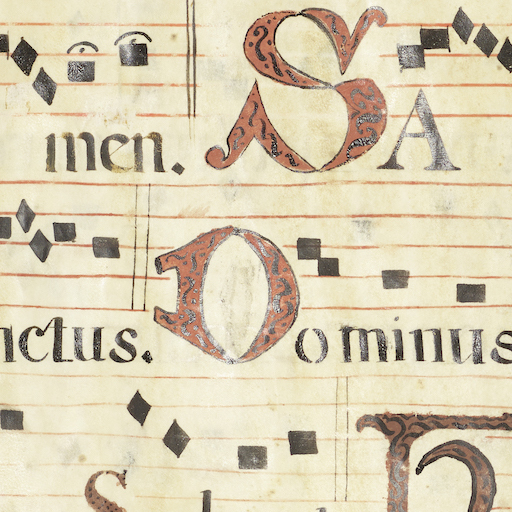 men. SA
nctus. Dominus
S